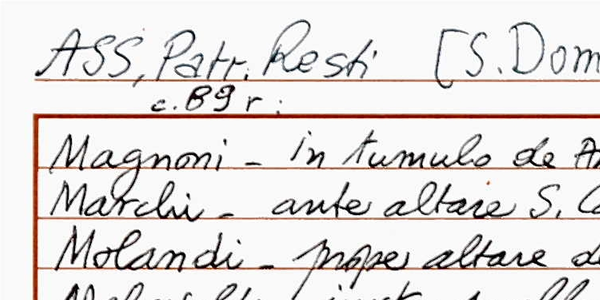 ASS, Patr. Resti [S. Dom
c. 89 r:
Magnoni - in tumulo de
Marchi - ante altare S.
Molandi - prope altare